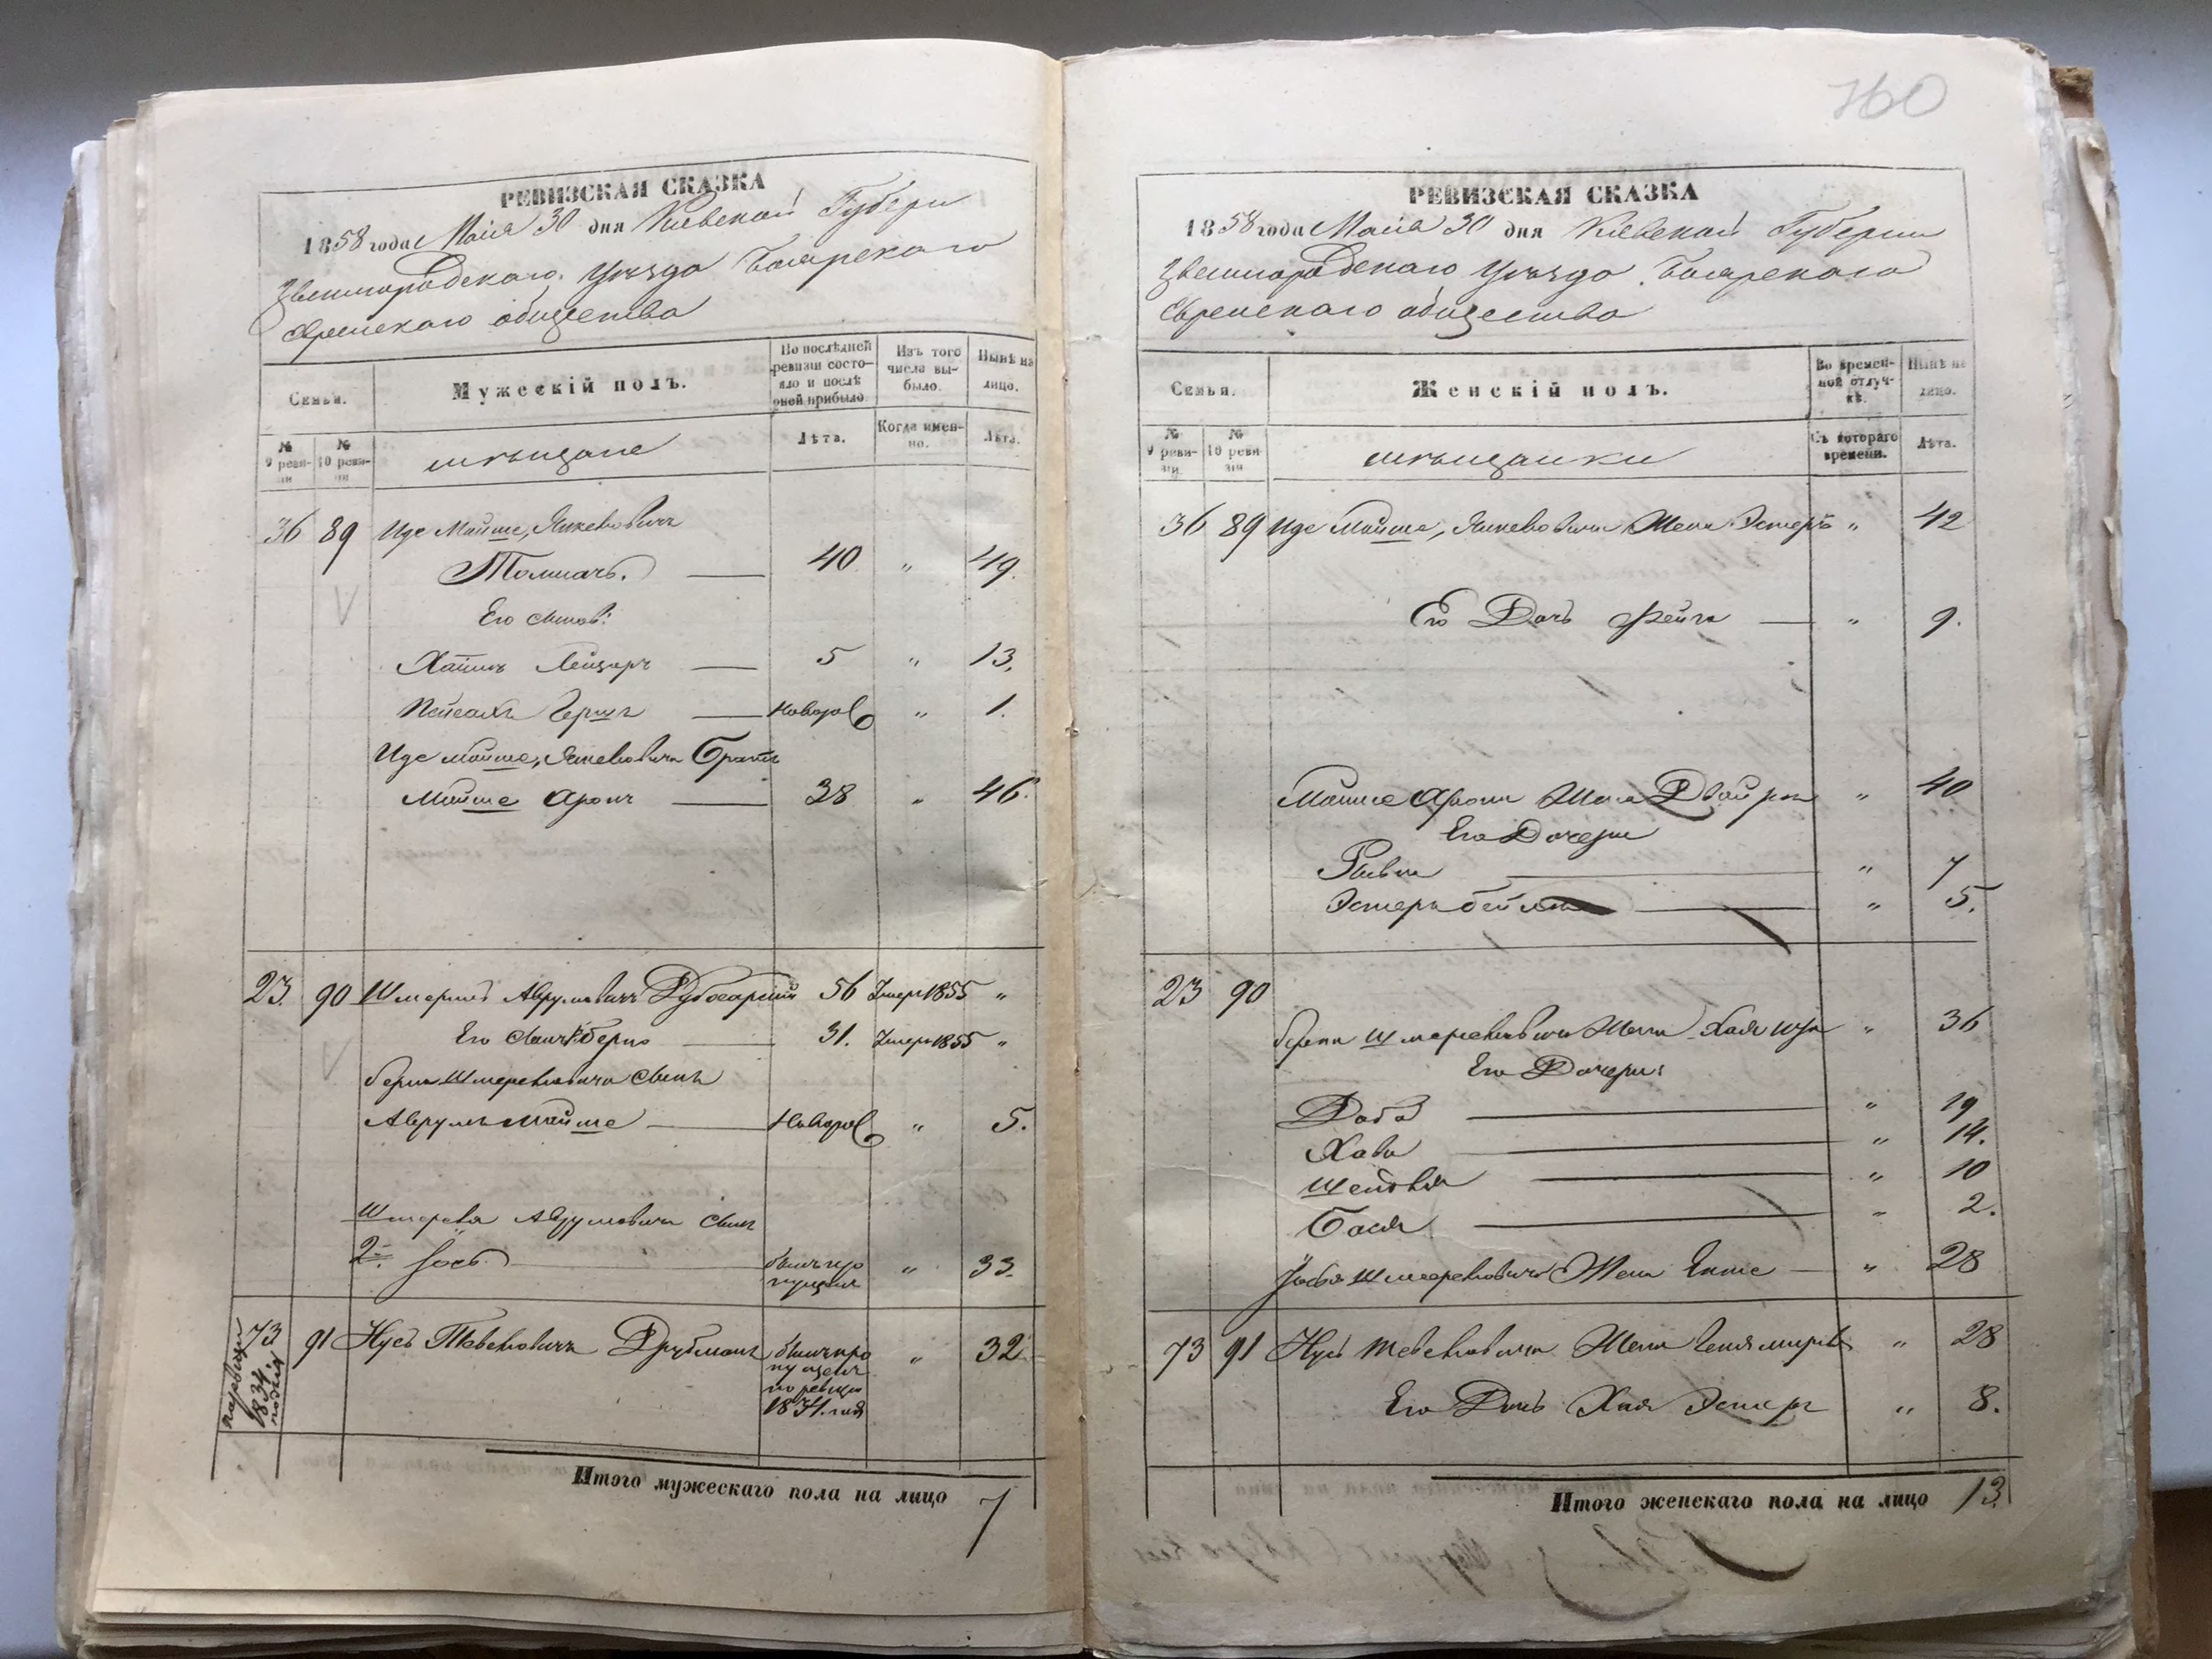 РЕВИЗСКАЯ СКАЗКА
1858 года Маія 30 дня Киевской Губерн
Звенигородскаго Уѣзда Боярскаго
Еврейскаго общества
Семьи.
Мужескій полъ.
По послѣдней ревизіи состояло и послѣ оной прибыло
Изъ того числа выбыло.
Нынѣ на лицо.
№ 9 ревизіи
№ 10 ревизіи
мѣщане
Лѣта.
Когда именно.
Лѣта.
36 89 Иде Мойше, Янкевовичъ
Толмачъ. 40 " 49.
Его сынов:
Хаимъ Лейзеръ 5 " 13.
Пейсахъ Гершъ Новорo " 1.
Иде Мойше, Янкевовича Братъ
Мойше Аронъ 38 " 46.
23. 90 Шмерко Аврумовичъ Дубосарскій 56 Умеръ 1855 "
Его сынъ Берко 31. Умеръ 1855 "
Берка Шмеревовича сынъ
Аврумъ Мойше Новоро " 5.
Шмеревя Аврумовича сынъ
2й Іось былъ пропущенъ " 33.
73 по ревизіи 1834. года
91 Нусь Тевелевичъ Друбманъ былъ пропущенъ по ревизіи 1851. года " 32
Итого мужескаго пола на лицо 7
760
РЕВИЗСКАЯ СКАЗКА
1858 года Маія 30 дня Киевской Губерніи
Звенигородскаго Уѣзда Боярскаго
Еврейскаго общества
Семьи.
Женскій полъ.
Во временной отлучкѣ.
Нынѣ на лицо.
№ 9 ревизіи
№ 10 ревизіи
мѣщанки
Съ котораго времени.
Лѣта.
36 89 Иде Мойше, Янкевовича Жена Эстеръ " 42
Его Дочь Фейга " 9.
Мойше Арона Жена Двойра " 40
Его Дочери
Рывка " 7
Эстеръ Бейла " 5.
23 90
Берка Шмеревовича Жена Хая " 36
Его Дочери:
Доба " 19
Хава " 14.
Шейндля " 10
Бася " 2.
Іося Шмеревовича Жена Ента " 28
73 91 Нуся Тевелевича Жена Геня " 28
Его Дочь Хая Эстеръ " 8.
Итого женскаго пола на лицо 13.